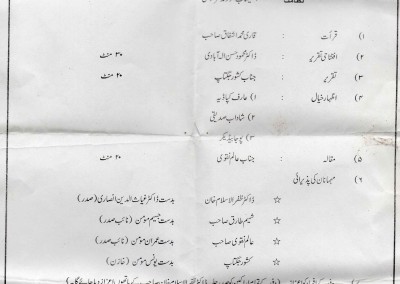 ۱) قرأت : قاری محمد اشفاق صاحب
۲) افتتاحی تقریر : ڈاکٹر محمود حسن الہ آبادی ۳۰ منٹ
۳) تقریر : جناب کشور جگتاپ ۲۰ منٹ
۴) اظہار خیال : ۱) عارف کپاڈیہ
۲) شاداب صدیقی
۳) پوجا بیڈیکر
۵) مقالہ : جناب عالم نقوی ۲۰ منٹ
۶) مہمانان کی پذیرائی
☆ ڈاکٹر ظفر الاسلام خان بدست ڈاکٹر غیاث الدین انصاری (صدر)
☆ شمیم طارق صاحب بدست جسیم مومن (نائب صدر)
☆ عالم نقوی صاحب بدست عمران مومن (نائب صدر)
☆ کشور جگتاپ بدست یونس مومن (خازن)